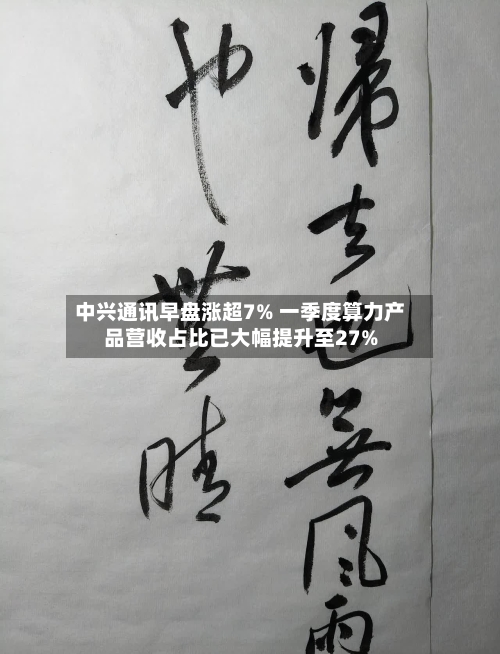 歸去也無風雨
也無晴
中兴通讯早盘涨超7% 一季度算力产
品营收占比已大幅提升至27%